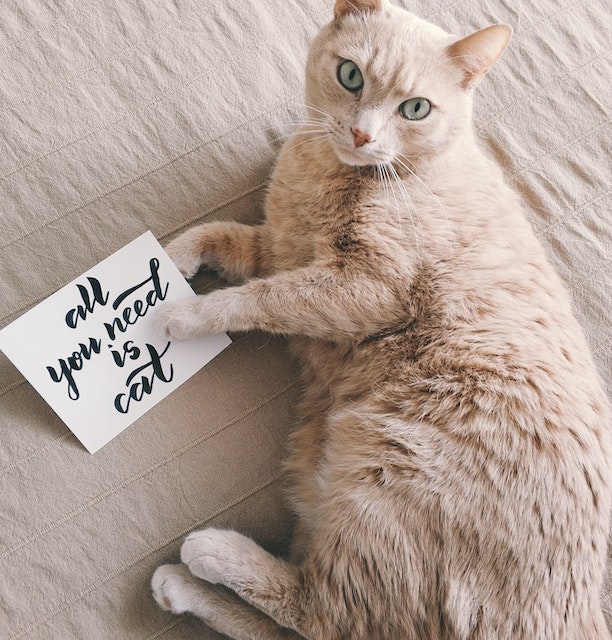 all
you need
is
cat